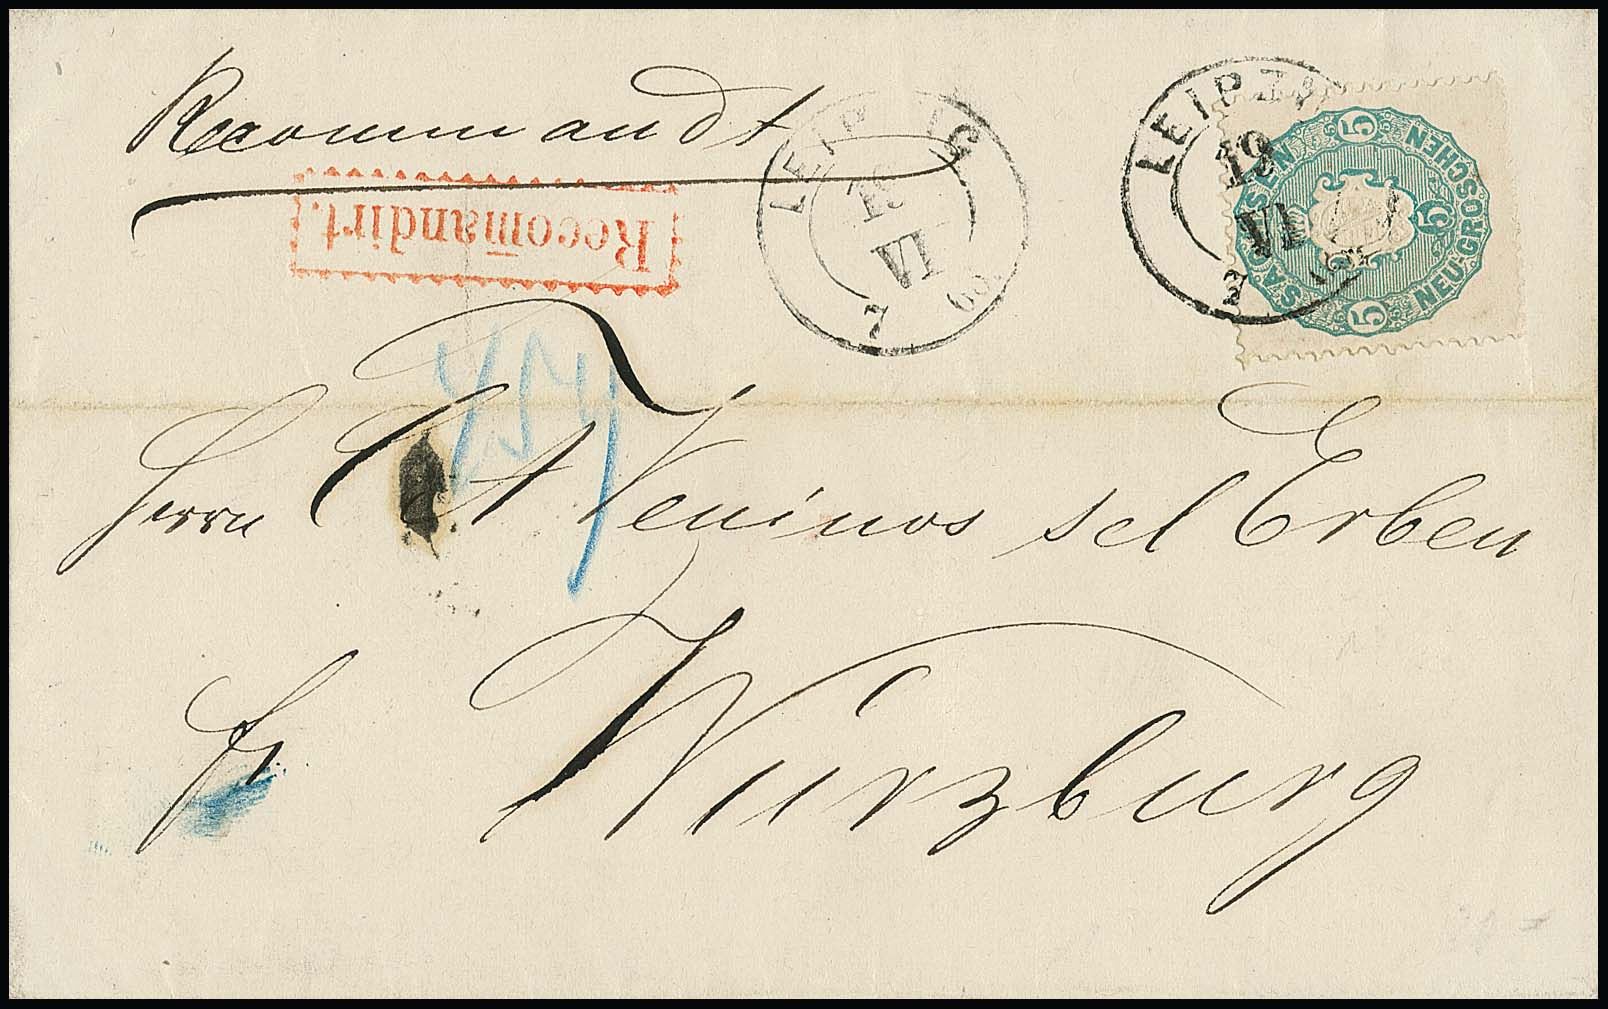 Recommandt
Recom̄andirt.
LEIPZIG
19
VI
7 65
LEIPZIG
19
VI
7
SACHSEN
5 5 5
NEU-GROSCHEN
Herrn Veninos sel Erben
Würzburg